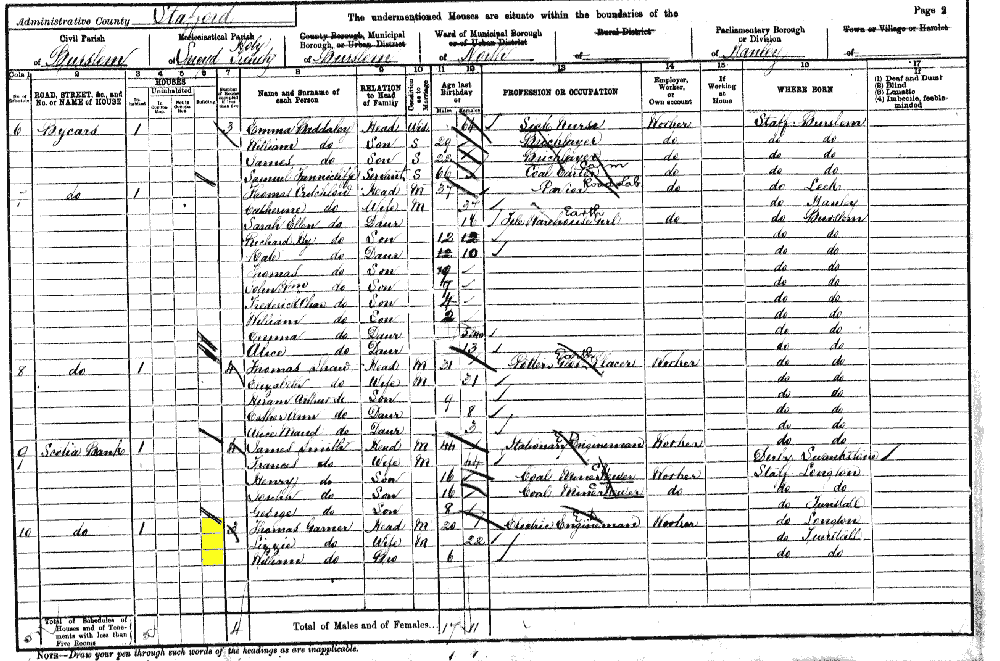 Administrative County Stafford
The undermentioned Houses are situate within the boundaries of the
Page 2
Civil Parish
of Burslem
Ecclesiastical Parish
of Holy Trinity
County Borough, Municipal Borough, or Urban District
of Burslem
Ward of Municipal Borough or of Urban District
of North
Rural District
of
Parliamentary Borough or Division
of Hanley
Town or Village or Hamlet
of
Cols. 1 2 3 4 5 6 7 8 9 10 11 12 13 14 15 16 17
ROAD, STREET, &c., and No. or NAME of HOUSE
HOUSES
Uninhabited
Building
Name and Surname of each Person
RELATION to Head of Family
Condition as to Marriage
Age last Birthday
Males Females
PROFESSION OR OCCUPATION
Employer, Worker, or Own account
If Working at Home
WHERE BORN
If
(1) Deaf and Dumb
(2) Blind
(3) Lunatic
(4) Imbecile, feeble-minded
6 Bycars 1 3 Emma Head Wid. Sick Nurse Worker Staffs Burslem
William do Son S 29 Bricklayer do do do
James do Son S 22 Bricklayer do do do
Samuel Servant S 66 Coal Carter do do do
7 do 1 Thomas Critchlow Head M 37 Road Lab do do Leek
Catherine do Wife M 37 do Hanley
Sarah Ellen do Daur 14 Tile Warehouse Girl do do Burslem
Richard Hy do Son 12 do do
Kate do Daur 10 do do
Thomas do Son 9 do do
John Wm do Son 7 do do
Frederick Chas do Son 4 do do
William do Son 2 do do
Emma do Daur do do
Alice do Daur 13 do do
8 do 1 4 Thomas Shaw Head M 31 Potter's Placer Worker do do
Elizabeth do Wife M 31 do do
Hiram Arthur do Son 9 do do
Esther Ann do Daur 8 do do
Alice Maud do Daur 3 do do
9 Scotia Bank 1 4 James Smith Head M 44 Stationary Engineman Worker do do
Frances do Wife M 44 Derby Swanchtone
Henry do Son 16 Coal Miner Worker Staffs Longton
Joseph do Son 16 Coal Miner do do do
George do Son 8 do Tunstall
10 do 1 2 Thomas Garner Head M 20 Electric Engineman Worker do Longton
Lizzie do Wife M 22 do Tunstall
William do Bro 6 do do
Total of Schedules of Houses and of Tenements with less than Five Rooms
5 4
Total of Males and of Females... 17 11
NOTE—Draw your pen through such words of the headings as are inapplicable.